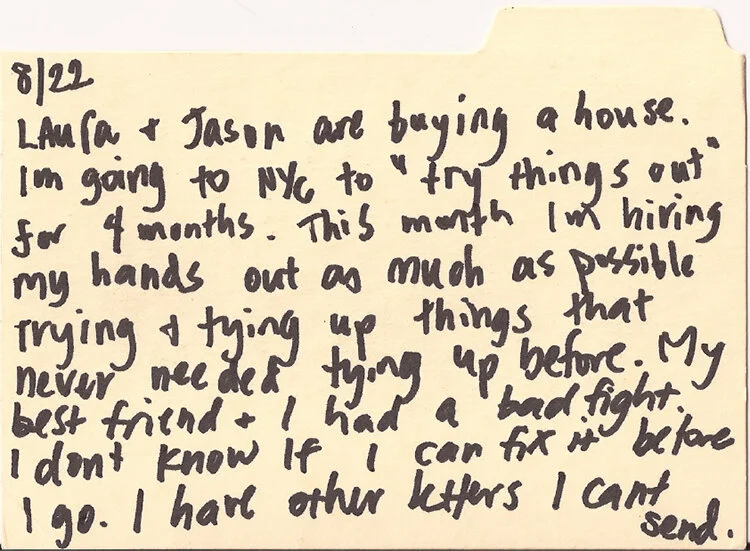 8/22
LAURa + Jason are buying a house.
Im going to NYC to "try things out"
for 4 months. This month Im hiring
my hands out as much as possible
trying & tying up things that
never needed tying up before. My
best friend + I had a bad fight.
I dont know if I can fix it before
I go. I have other letters I cant
send.